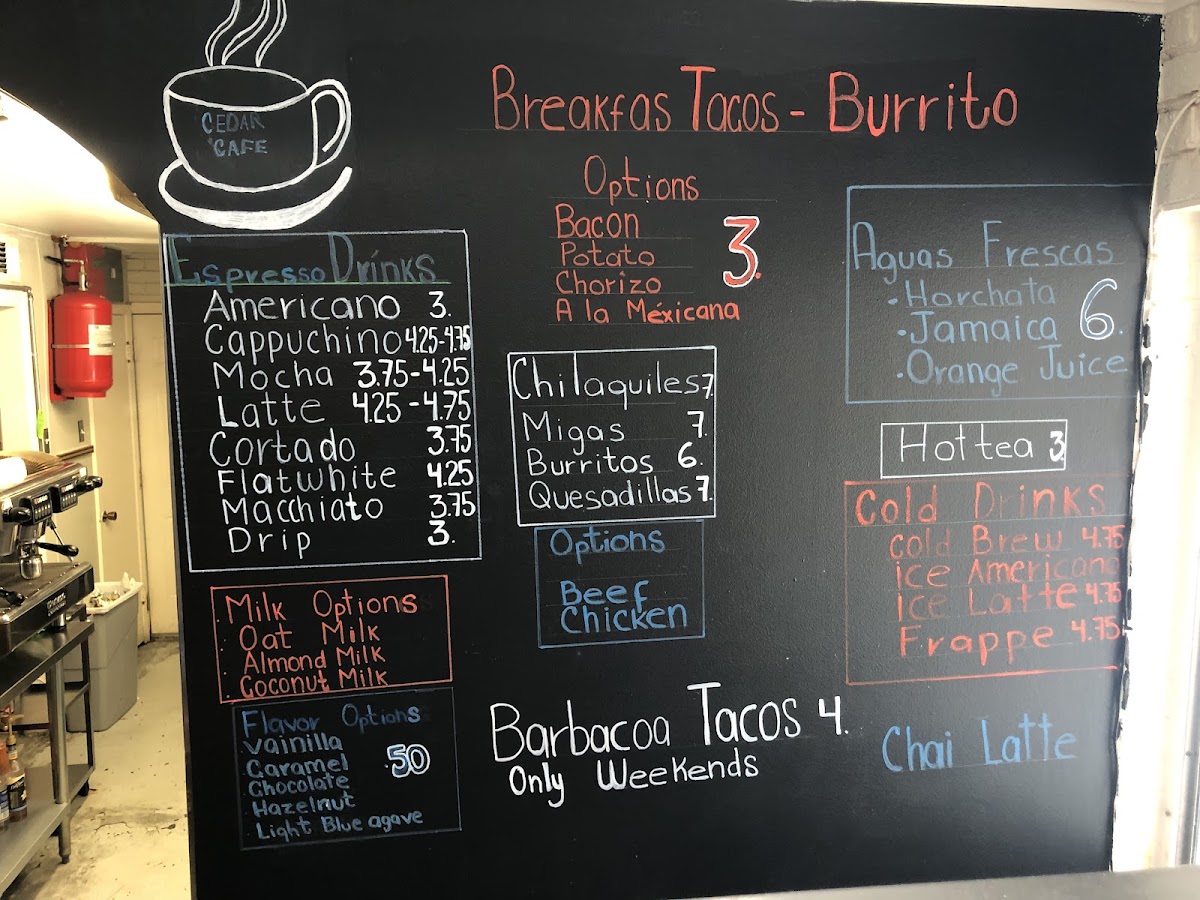 CEDAR
CAFE
Breakfas Tacos - Burrito
Options
Bacon
Potato
Chorizo
A la Méxicana
3.
Espresso Drinks
Americano 3.
Cappuchino 4.25-4.75
Mocha 3.75-4.25
Latte 4.25-4.75
Cortado 3.75
Flatwhite 4.25
Macchiato 3.75
Drip 3.
Milk Options
Oat Milk
Almond Milk
Coconut Milk
Flavor Options
Vainilla
Caramel
Chocolate
Hazelnut
Light Blue agave
.50
Chilaquiles 7.
Migas 7.
Burritos 6.
Quesadillas 7.
Options
Beef
Chicken
Barbacoa Tacos 4.
Only Weekends
Aguas Frescas
• Horchata
• Jamaica
• Orange Juice
6.
Hot tea 3.
Cold Drinks
Cold Brew 4.75
ice Americano
ice Latte 4.75
Frappe 4.75
Chai Latte